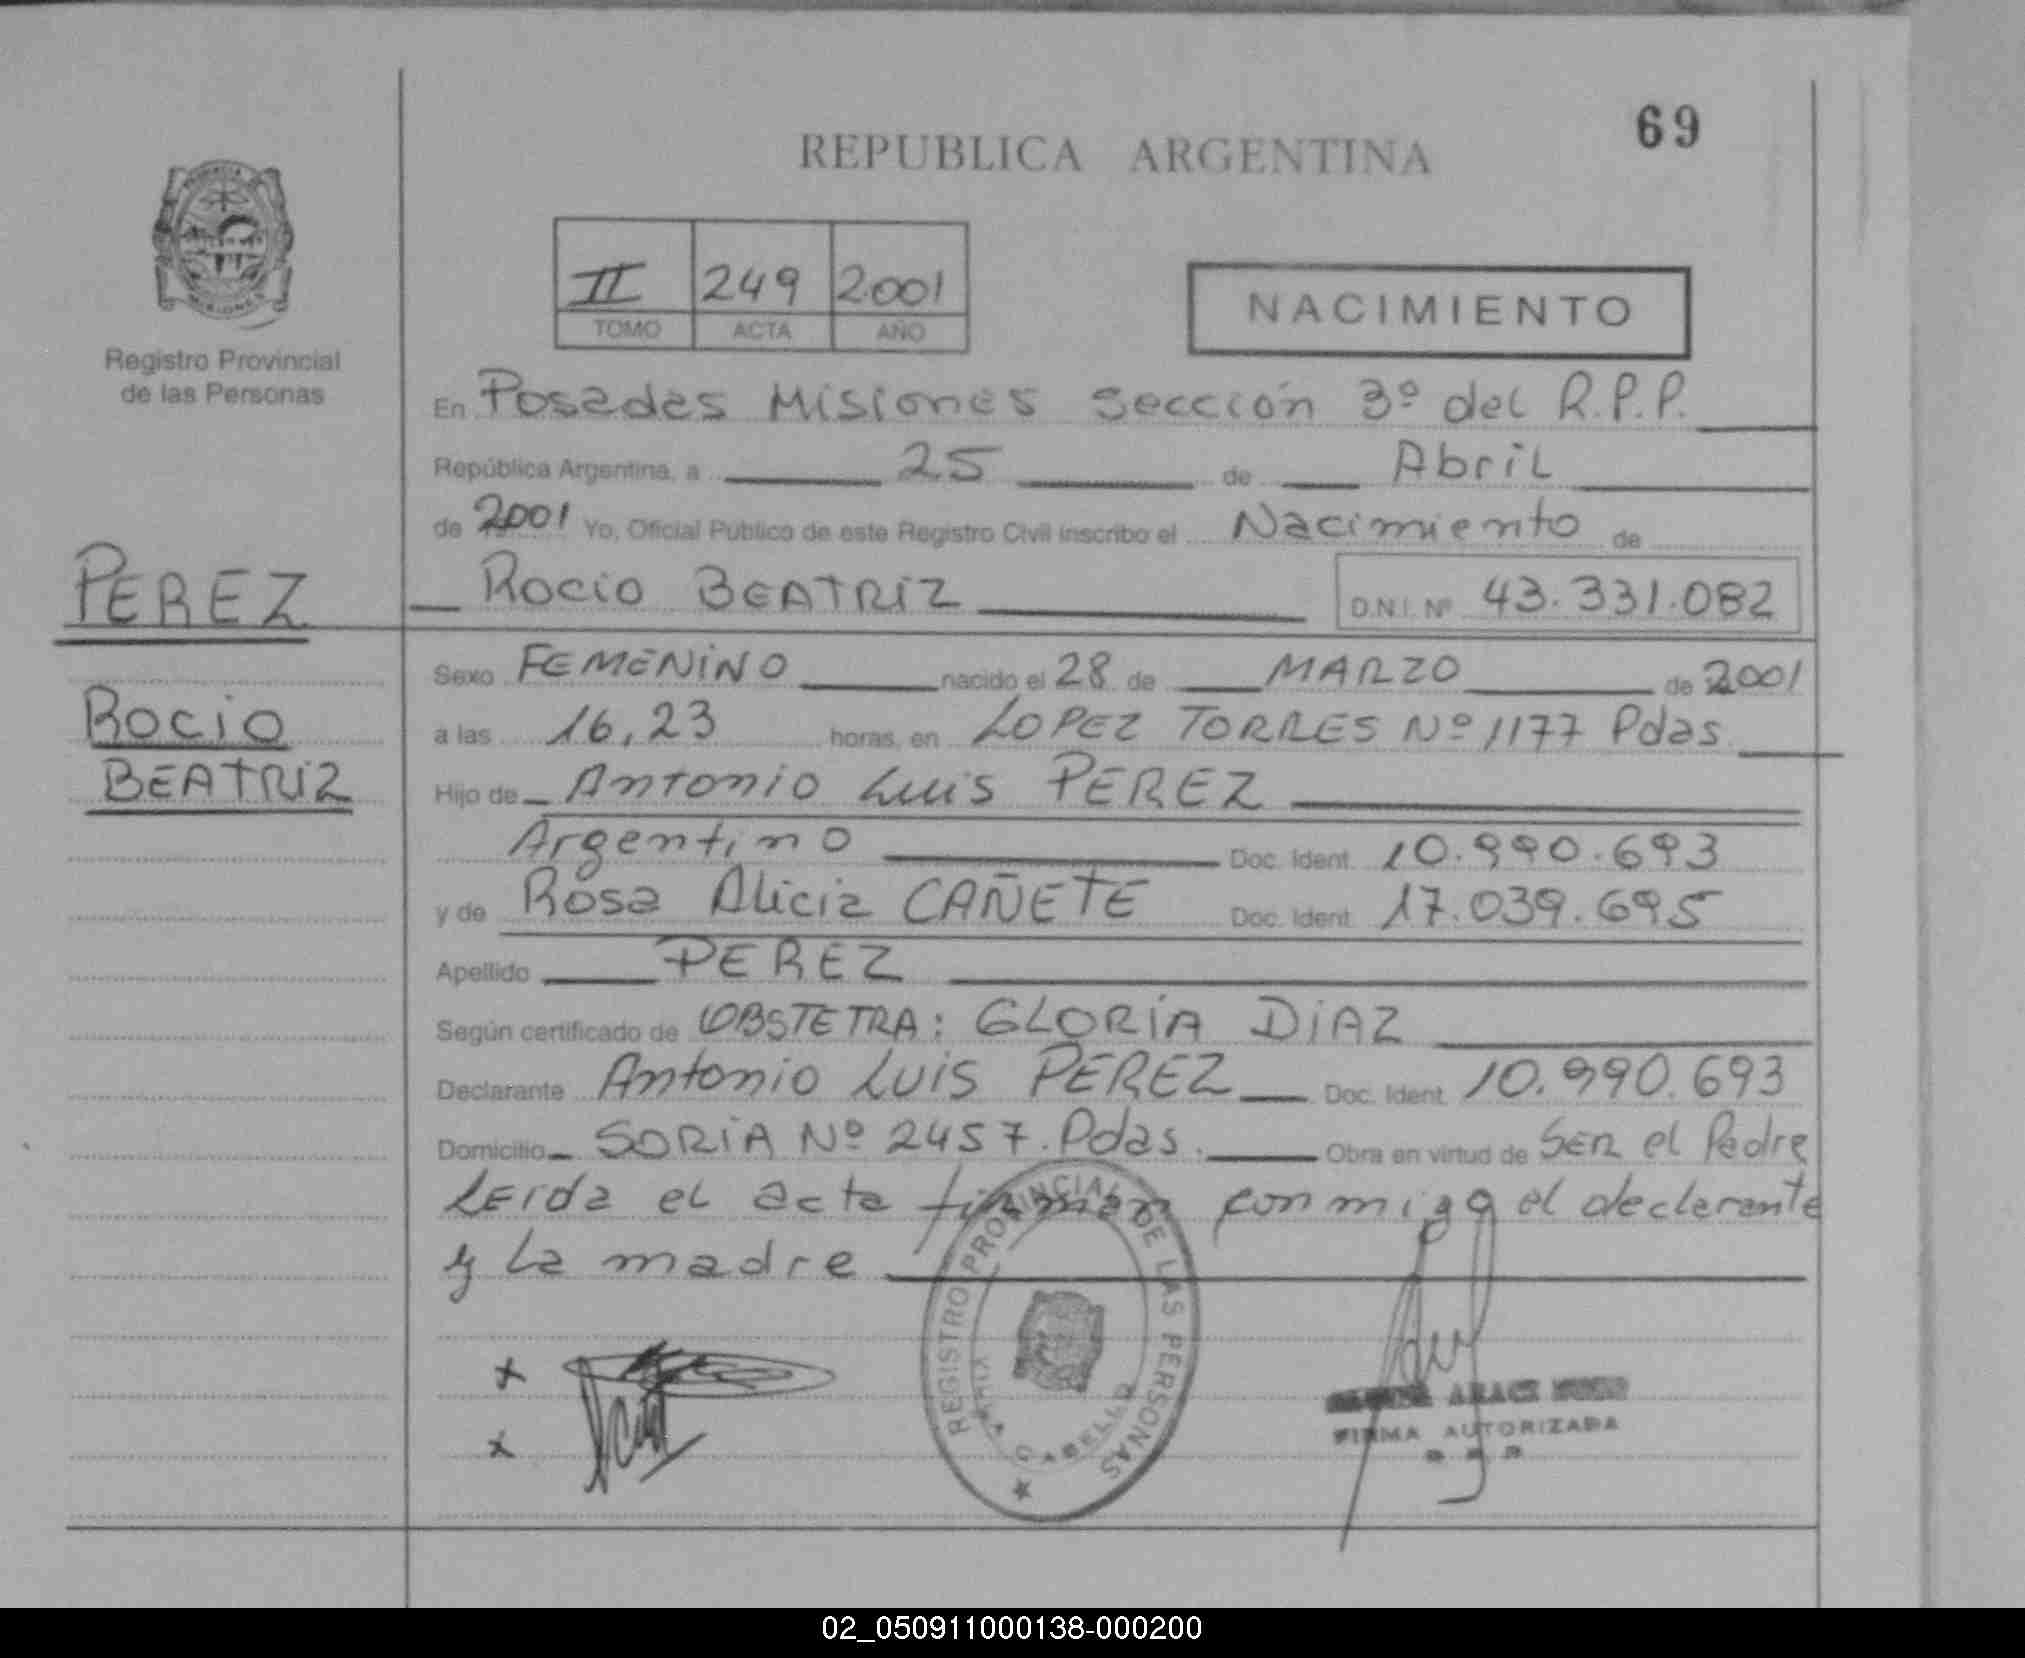 69
REPUBLICA ARGENTINA
II 249 2.001
TOMO ACTA AÑO
NACIMIENTO
Registro Provincial
de las Personas
En Posadas Misiones Sección 3º del R.P.P.
República Argentina, a 25 de Abril
de 2001 Yo, Oficial Público de este Registro Civil inscribo el Nacimiento de
PEREZ
Rocio BEATRIZ D.N.I. Nº 43.331.082
Sexo FEMENINO nacido el 28 de MARZO de 2001
ROCIO
a las 16,23 horas, en LOPEZ TORRES Nº 1177 Pdas
BEATRIZ
Hijo de Antonio Luis PEREZ
Argentino Doc. Ident. 10.990.693
y de Rosa Alicia CAÑETE Doc. Ident. 17.039.695
Apellido PEREZ
Según certificado de OBSTETRA: GLORIA DIAZ
Declarante Antonio LUIS PEREZ Doc. Ident. 10.990.693
Domicilio SORIA Nº 2457. Pdas. Obra en virtud de SER el Padre
Leida el acta firman conmigo el declarante
y la madre
x
x
REGISTRO PROVINCIAL DE LAS PERSONAS
CABELLO
FIRMA AUTORIZADA
02_050911000138-000200